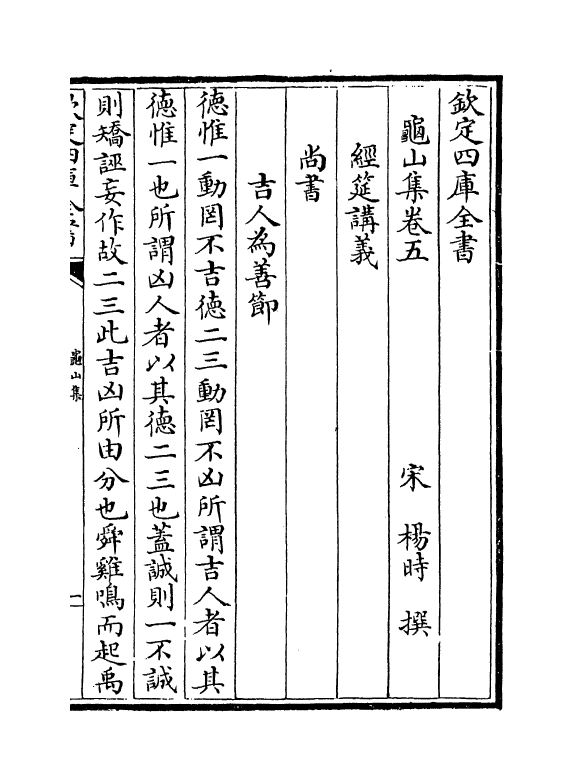 欽定四庫全書
龜山集卷五
宋 楊時 撰
經筵講義
尚書
吉人為善節
德惟一動罔不吉德二三動罔不凶所謂吉人者以其
德惟一也所謂凶人者以其德二三也蓋誠則一不誠
則矯誣妄作故二三此吉凶所由分也舜雞鳴而起禹
欽定四庫全書
龜山集